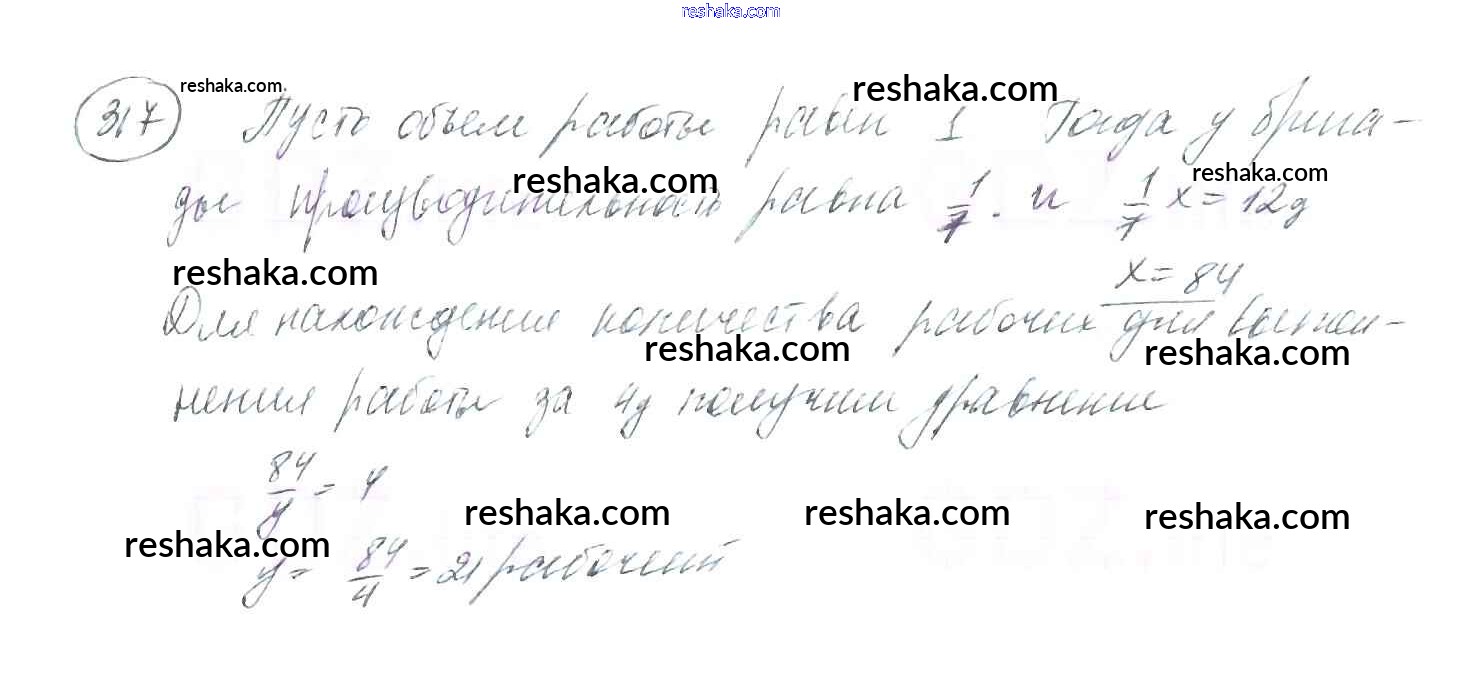 reshaka.com
317 reshaka.com Пусть объем работы равен 1 Тогда у брига- reshaka.com
ды производительность равна 1/7. и 1/7 x = 12д reshaka.com reshaka.com
reshaka.com x = 84
Для нахождения количества рабочих для выпол- reshaka.com reshaka.com
нения работы за 4д получим уравнение
84/y = 4
reshaka.com reshaka.com reshaka.com
reshaka.com y = 84/4 = 21 рабочий